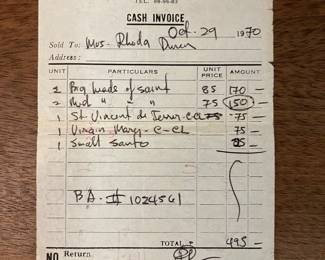 TEL.
CASH INVOICE
Oct. 29 1970
Sold To: Mrs. Rhoda
Address:
UNIT PARTICULARS UNIT PRICE AMOUNT
2 Big heads of saint 85 170 –
2 Med " " – 75 150 –
1 St Vincent de Ferrer - CCL 75 75
1 Virgin Mary - C-CL 75
1 Small Santo 25 –
BA - # 1024561
TOTAL 495 –
NO Return